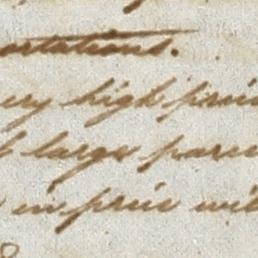 ortations.
ery high pric
large parce
in price wit